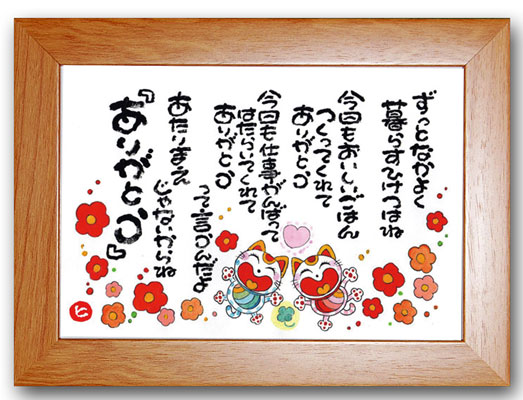 ずっとなかよく
暮らすひけつはね
今回もおいしいごはん
つくってくれて
ありがとう
今回も仕事がんばって
はたらいてくれて
ありがとう
って言うんだよ
あたりまえ
じゃないからね
『ありがとう』
と